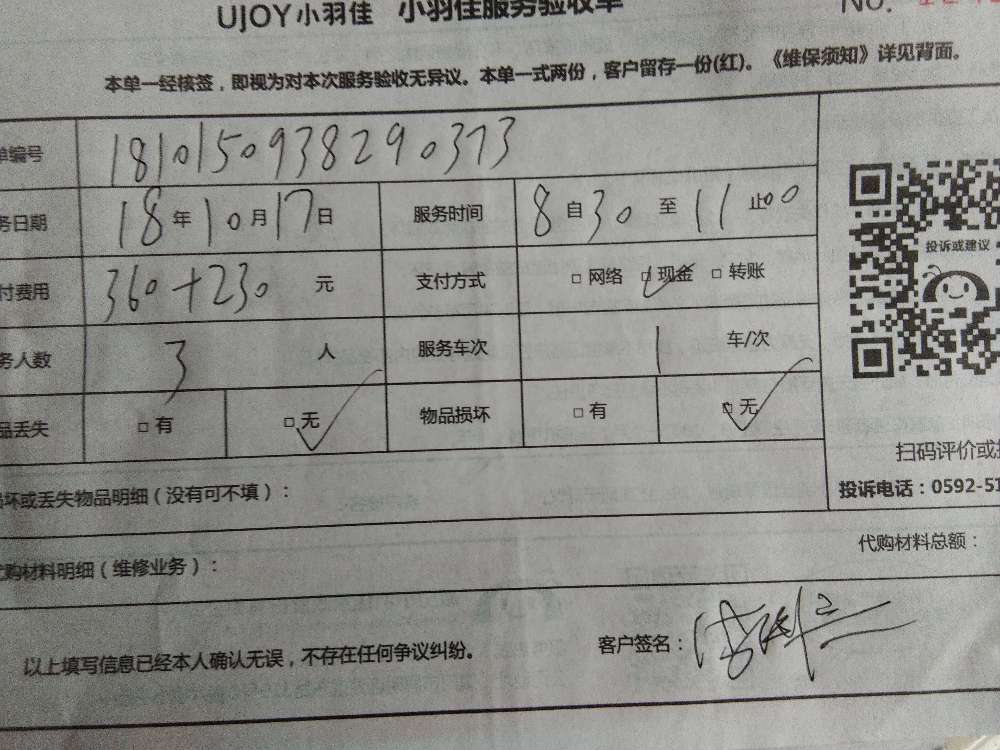 UJOY小羽佳 小羽佳服务验收单
NO.
本单一经核签，即视为对本次服务验收无异议。本单一式两份，客户留存一份(红)。《维保须知》详见背面。
单编号 1810150938290373
务日期 18年10月17日 服务时间 8自30至11止00
付费用 360+230 元 支付方式 □网络 □现金 □转账
务人数 3 人 服务车次 1 车/次
品丢失 □有 □无 物品损坏 □有 □无
投诉或建议
扫码评价或
投诉电话：0592-51
损坏或丢失物品明细（没有可不填）：
代购材料明细（维修业务）： 代购材料总额：
以上填写信息已经本人确认无误，不存在任何争议纠纷。 客户签名：